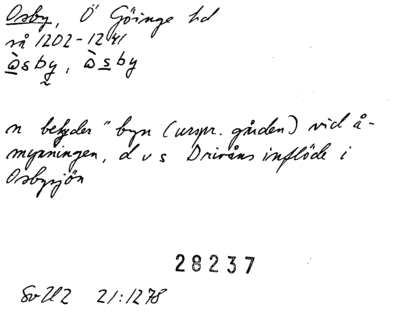 Osby, Ö Göinge hd
rå 1202-1241
ꞷ̀sby, ꞷ̀sby
n betyder "byn (urspr. gården) vid å-
mynningen, d v s Drivåns inflöde i
Osbysjön
28237
SvU2 21:1278